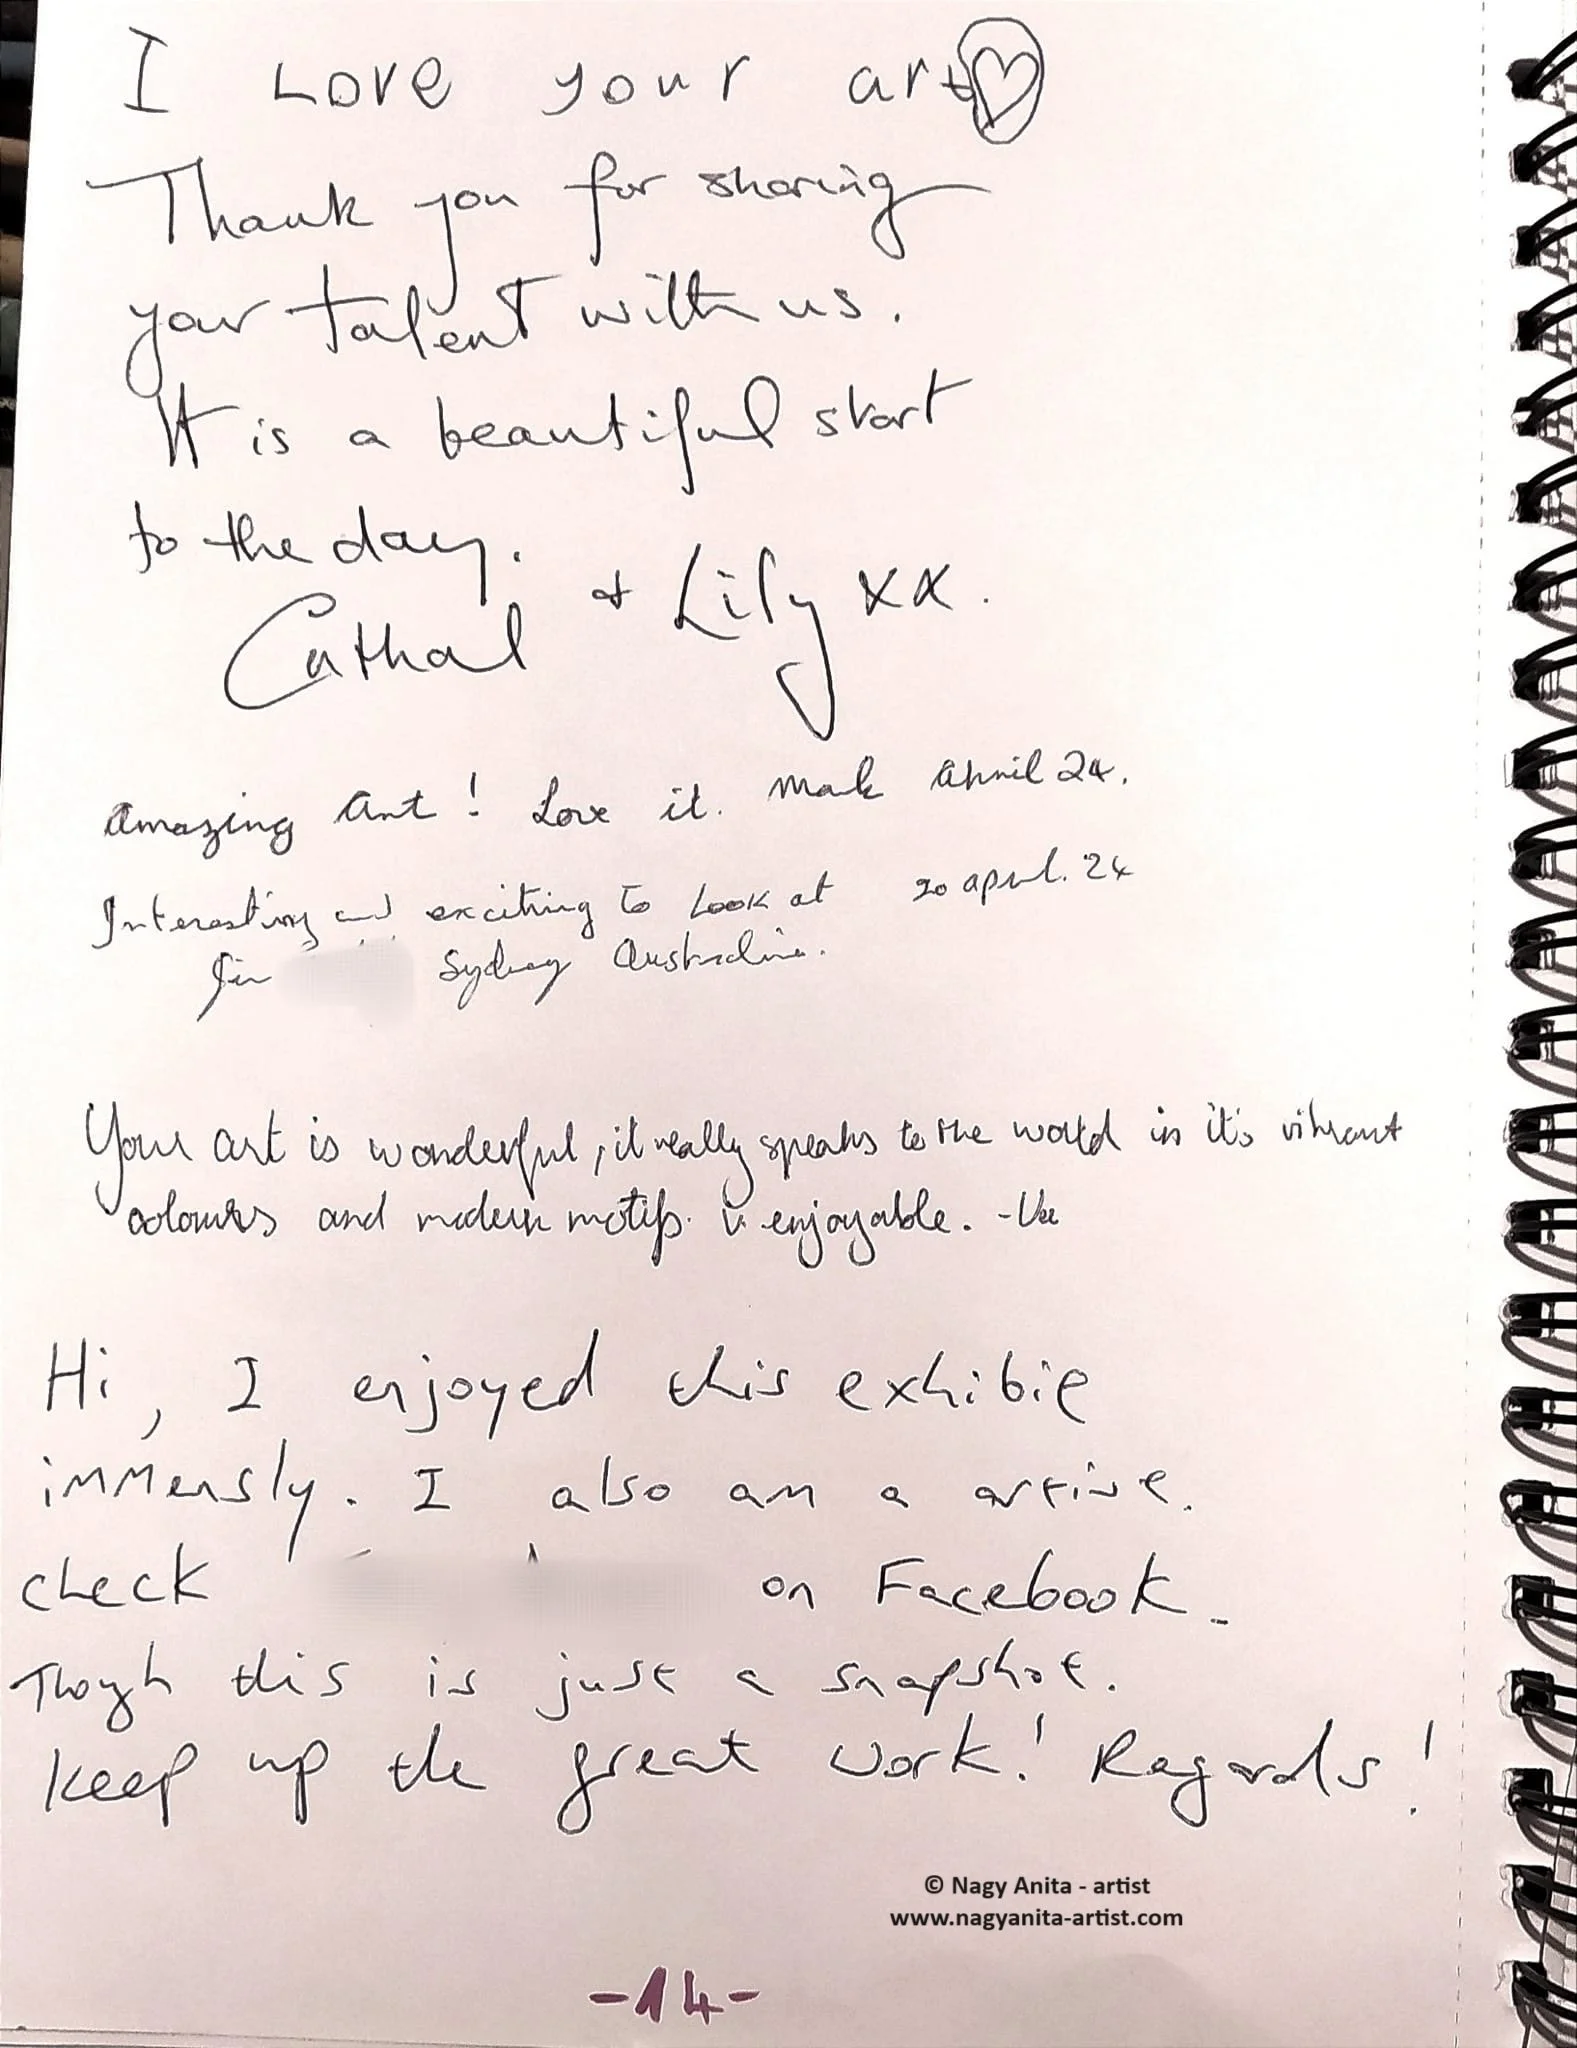 I Love your art
Thank you for sharing
your talent with us.
It is a beautiful start
to the day.
Cathal & Lily xx.
Amazing Art! Love it. Mark April 24.
Interesting and exciting to Look at 20 april. 24
Sydney
Your art is wonderful, it really speaks to the world in it's vibrant
colours and modern motifs. is enjoyable. -
Hi, I enjoyed this exhibit
immensly. I also am a artist.
check on Facebook.
Thogh this is just a snapshot.
Keep up the great work! Regards!
© Nagy Anita - artist
www.nagyanita-artist.com
-14-